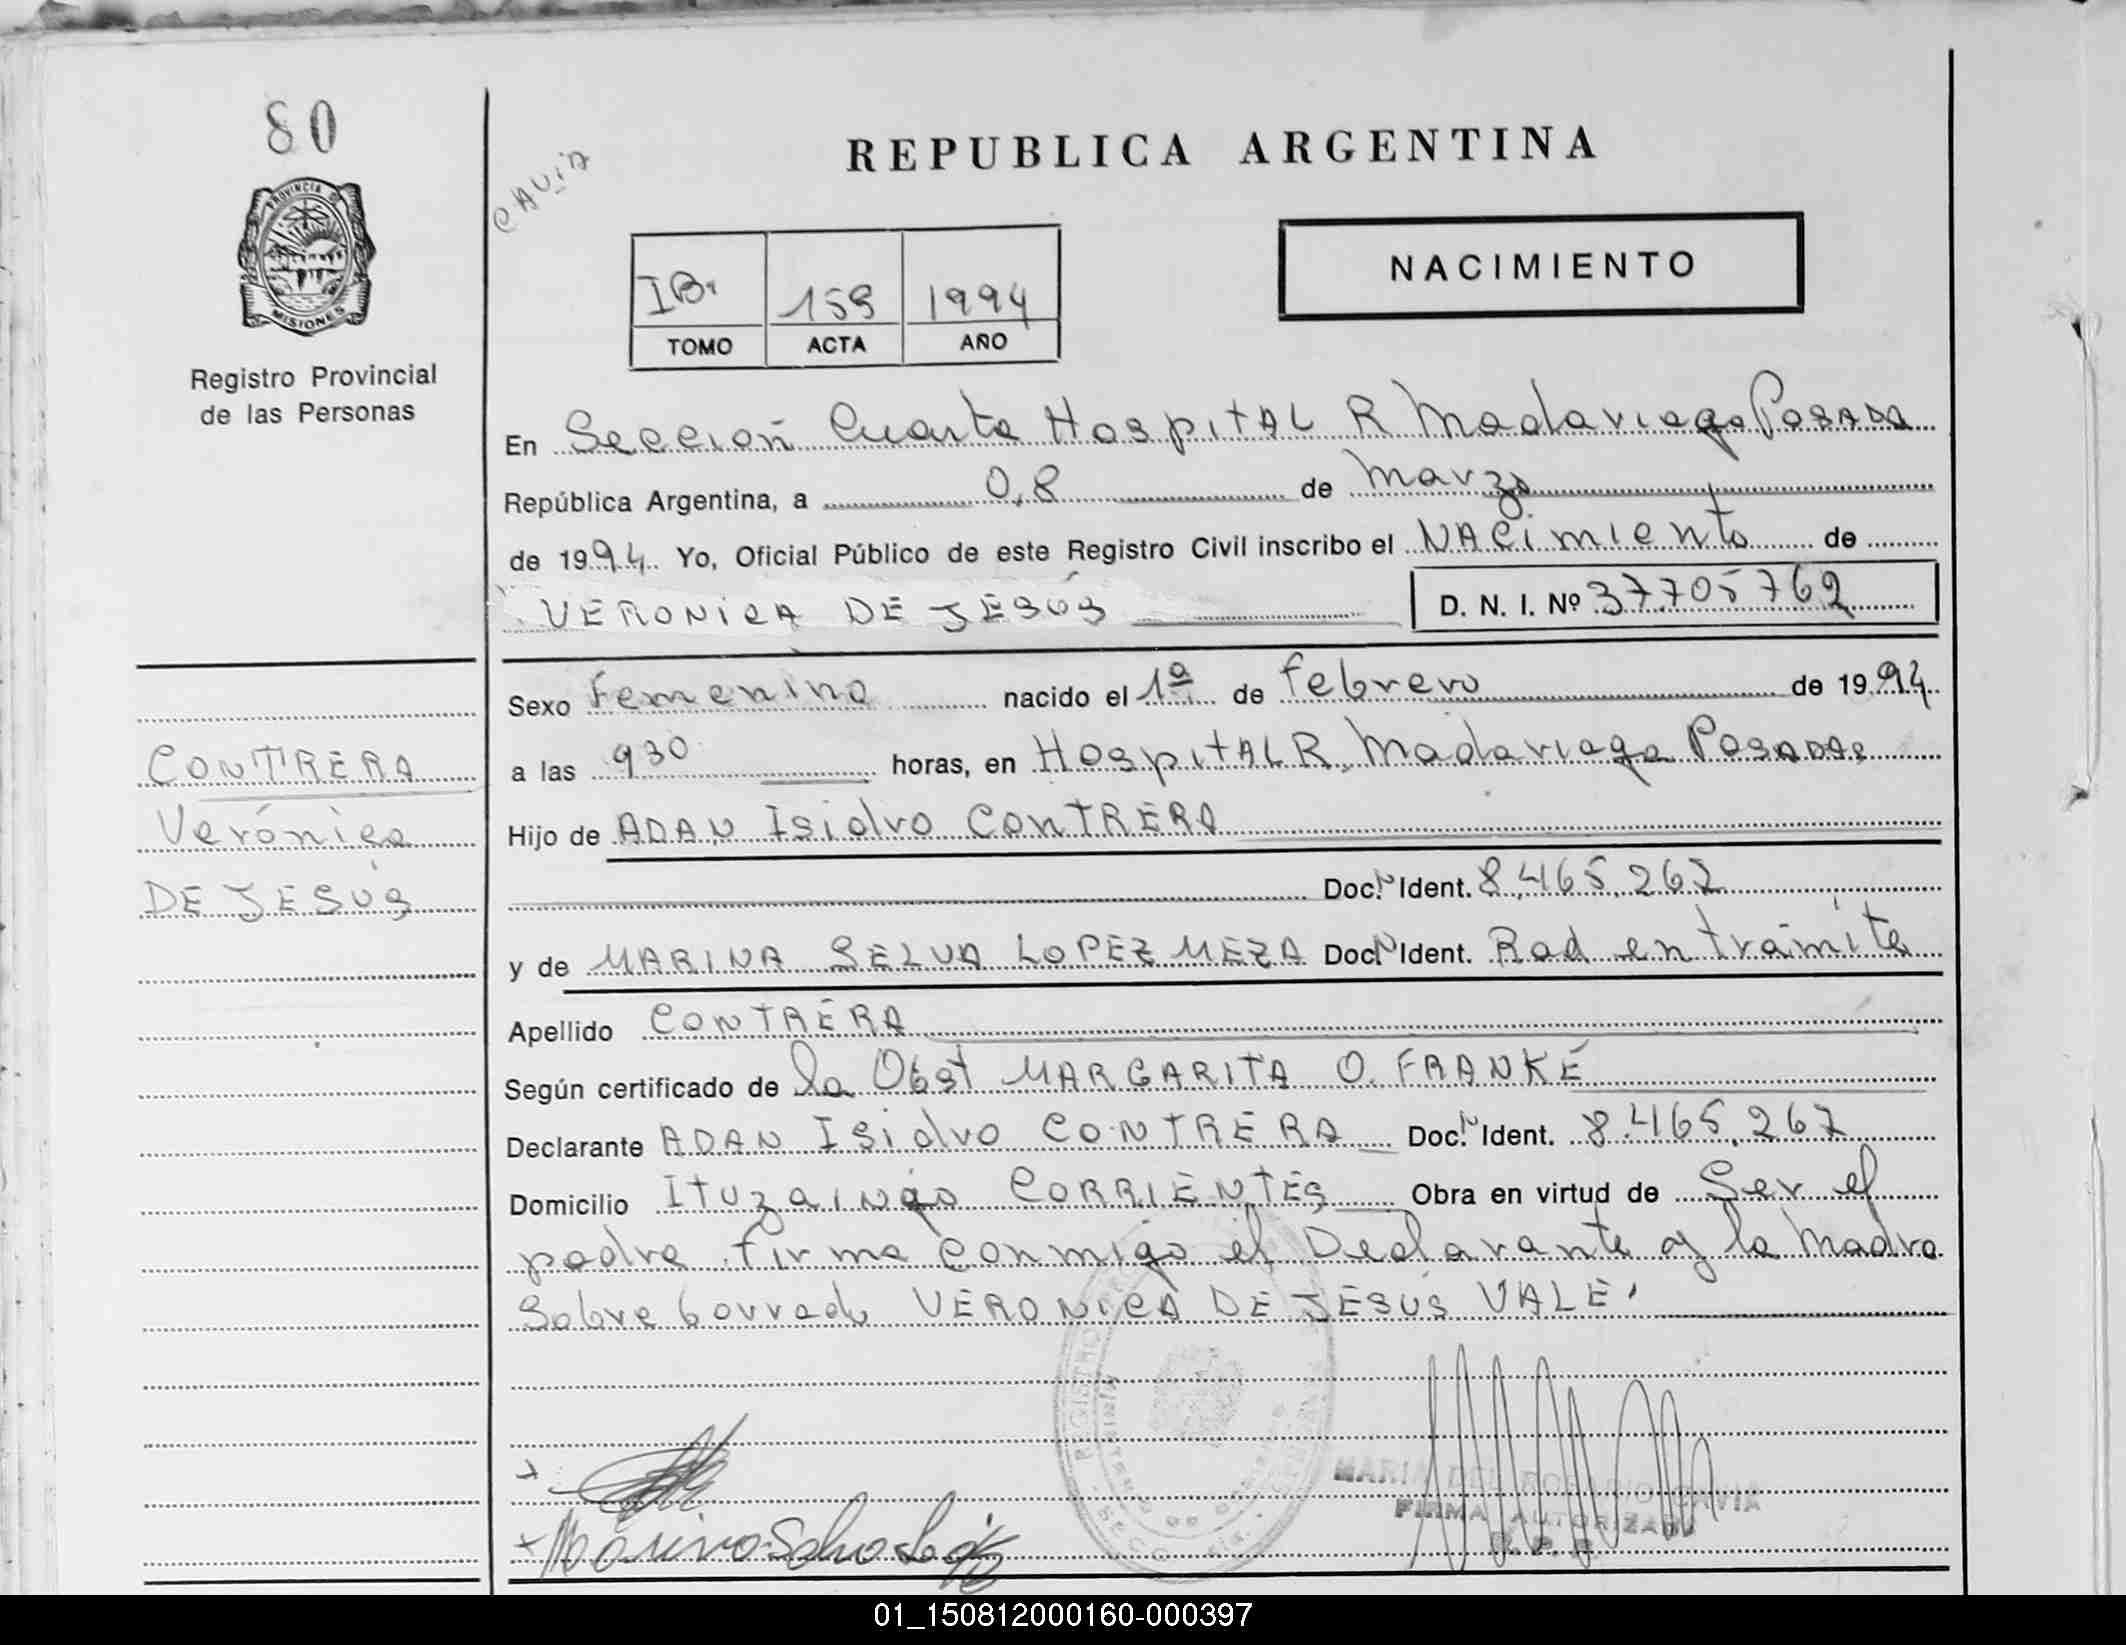 80
PROVINCIA DE
MISIONES
Registro Provincial
de las Personas
CAVIA
REPUBLICA ARGENTINA
IBr 159 1994
TOMO ACTA AÑO
NACIMIENTO
En Sección Cuarta HospitAL R Madariaga Posadas
República Argentina, a 08 de Marzo
de 1994 Yo, Oficial Público de este Registro Civil inscribo el NAcimiento de
VERONICA DE JESÚS D. N. I. Nº 37705762
Sexo Femenino nacido el 1º de febrero de 1994
a las 930 horas, en HospitAL R. Madariaga Posadas
Hijo de ADAN Isidro CONTRERA
Doc. N Ident. 8,465,267
y de MARINA SELVA LOPEZ MEZA Doc. N Ident. Rad en trámite
Apellido CONTRERA
Según certificado de la Obst MARGARITA O. FRANKE
Declarante ADAN Isidro CONTRERA Doc. N Ident. 8.465.267
Domicilio Ituzaingo CORRIENTES Obra en virtud de Ser el
padre. Firma conmigo el Declarante y la Madre
Sobre borrado VERONICA DE JESÚS VALE.
CONTRERA
Verónica
DE JESÚS
MARIA DEL ROSARIO CAVIA
FIRMA AUTORIZADA
R. P. P.
01_150812000160-000397